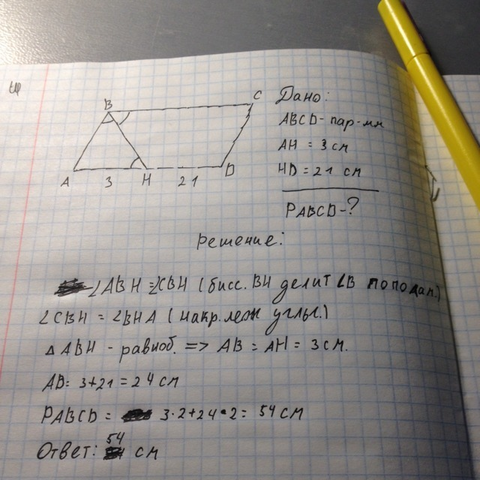 B
C
A
3
H
21
D
Дано:
ABCD-пар-мм
AH = 3 см
HD = 21 см
PABCD-?
решение:
∠ABH = ∠CBH (бисс. BH делит ∠B пополам.)
∠CBH = ∠BHA (накр. леж углы.)
△ ABH - равноб. => AB = AH = 3 см.
AD = 3+21 = 24 см
PABCD = 3·2+24·2 = 54 см
Ответ: 54 см